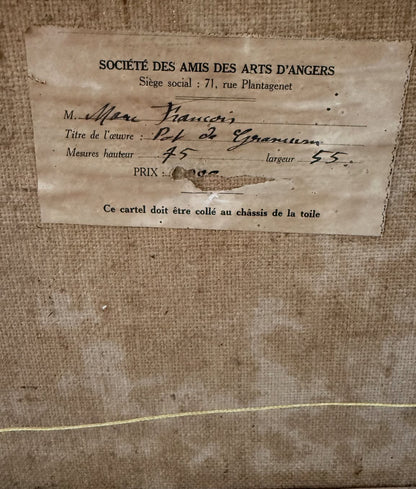 SOCIÉTÉ DES AMIS DES ARTS D'ANGERS
Siège social : 71, rue Plantagenet
M. Marc François
Titre de l'œuvre : Pot de Geranium
Mesures hauteur 75 largeur 55
PRIX :
Ce cartel doit être collé au châssis de la toile